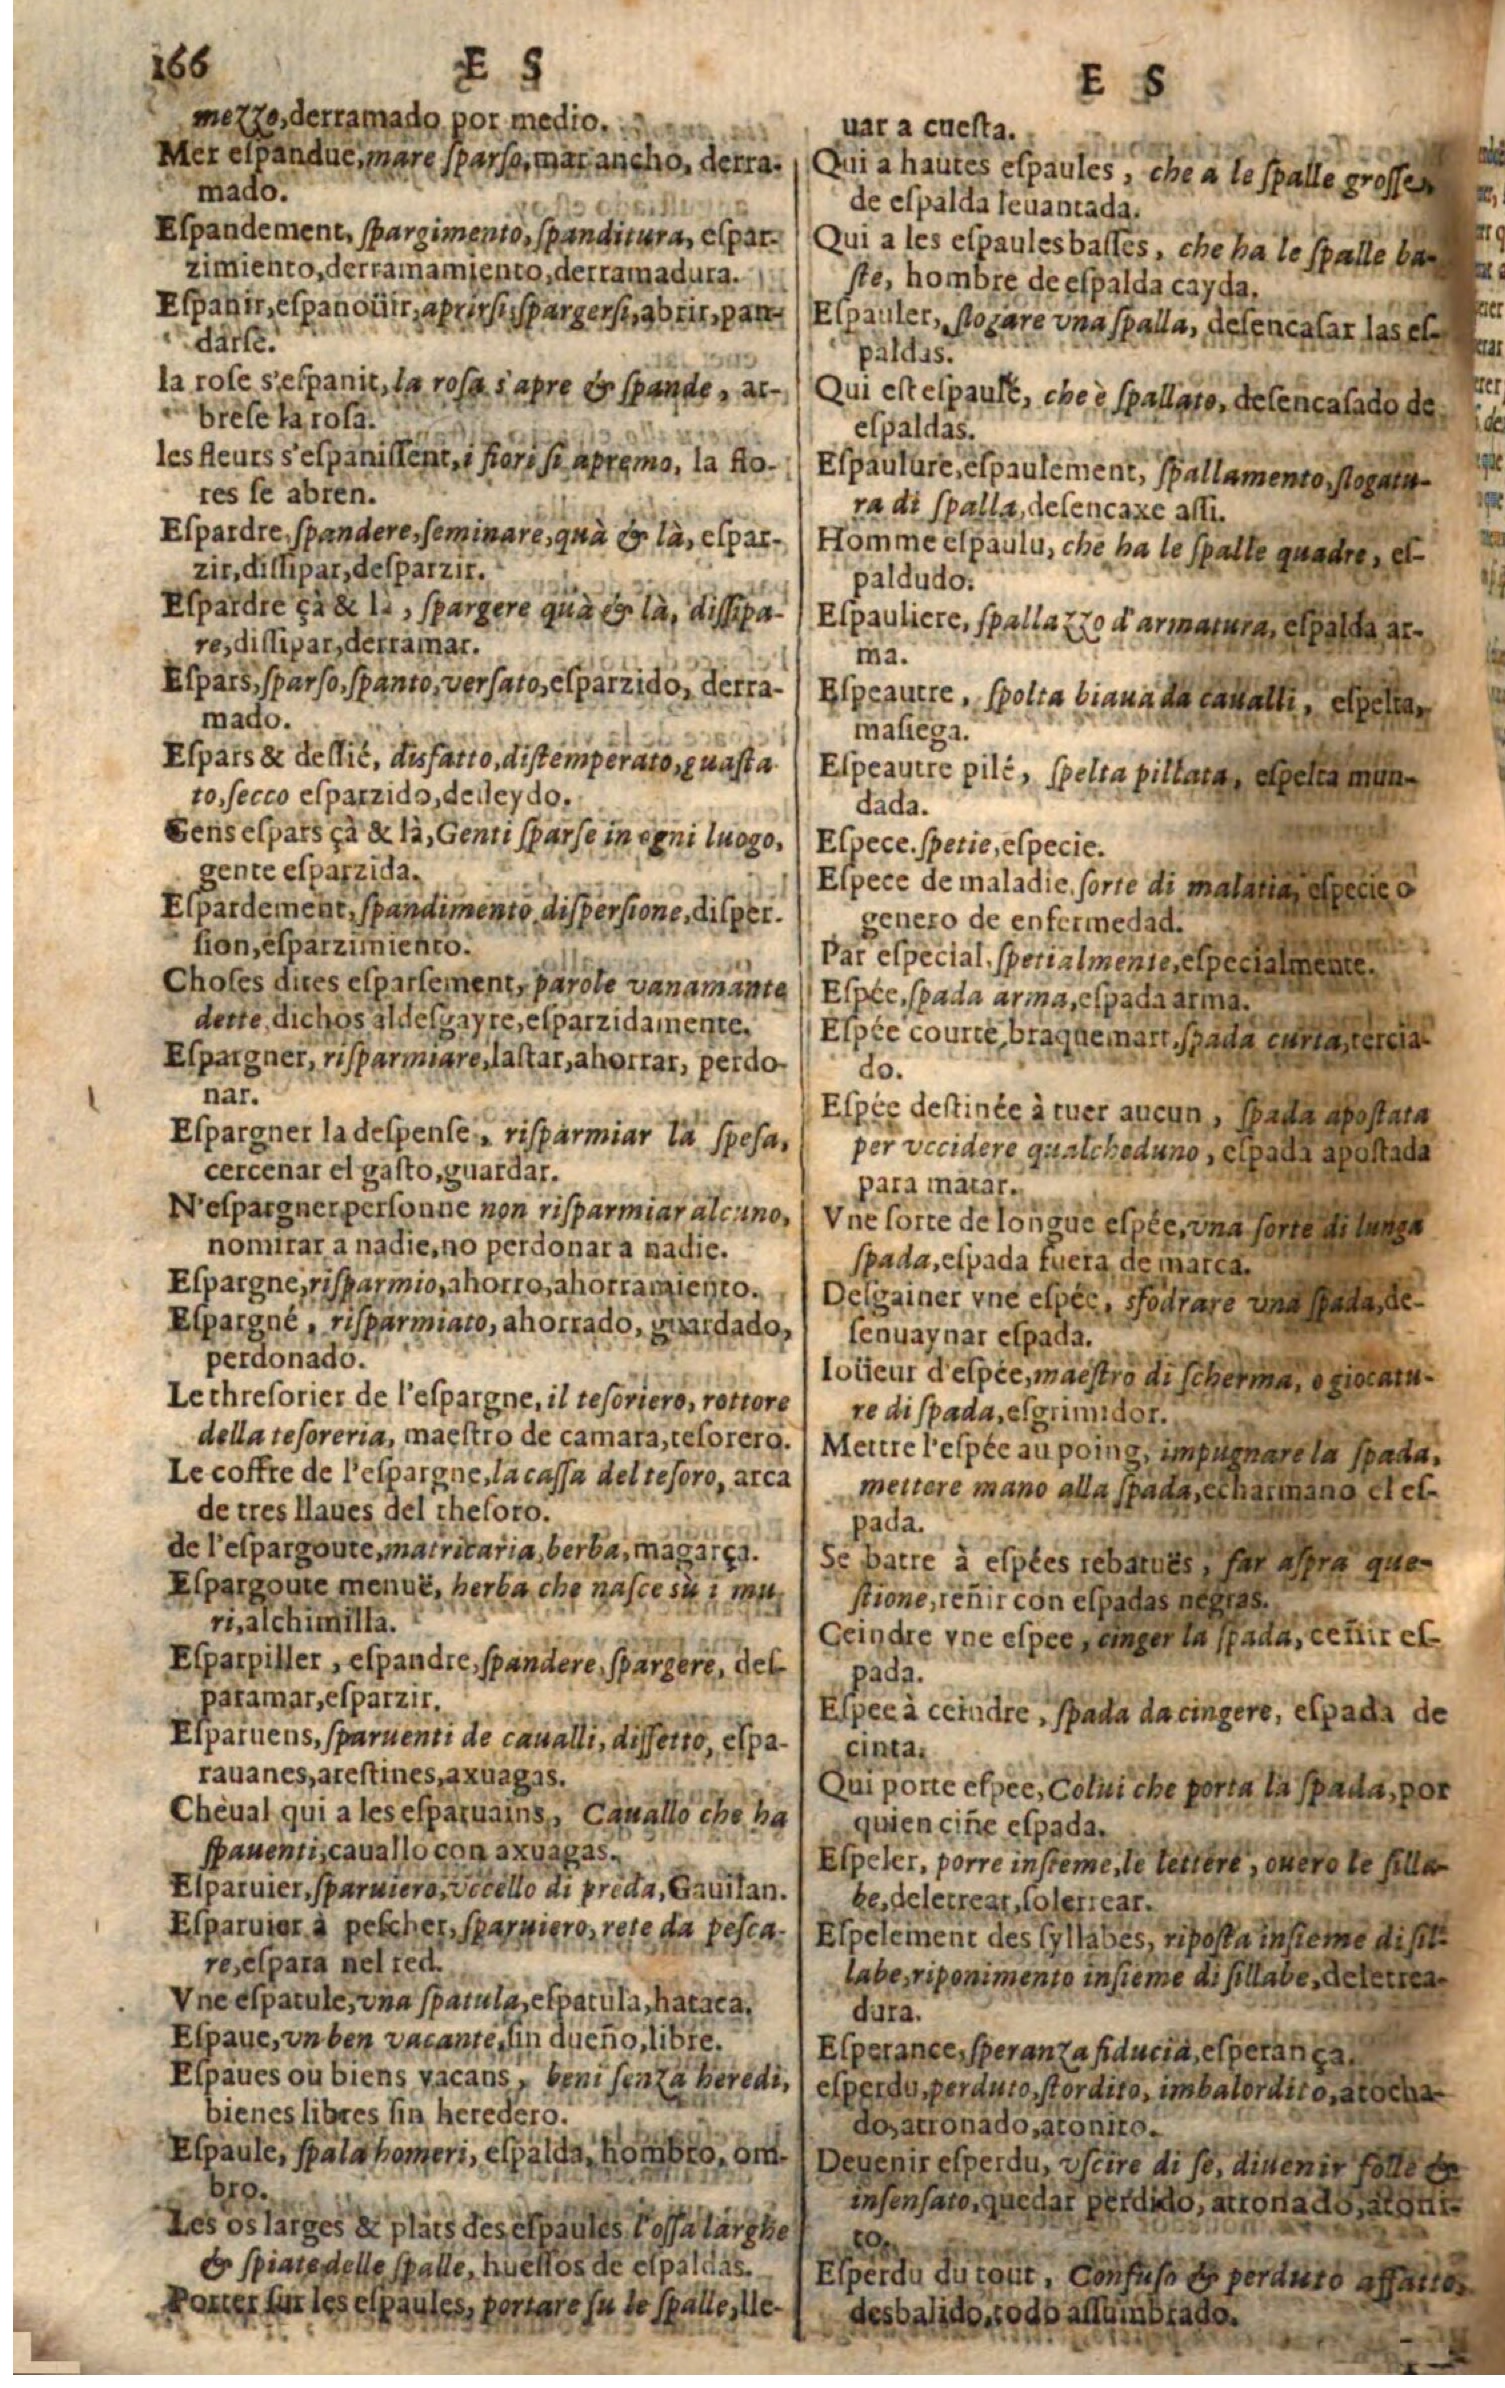 166 E S
mezzo, derramado por medio.
Mer eſpandue, mare ſparſo, mar ancho, derra-
mado.
Eſpandement, ſpargimento, ſpanditura, eſpar-
zimiento, derramamiento, derramadura.
Eſpanir, eſpanoüir, aprirſi, ſpargerſi, abrir, pan-
darſe.
la roſe s'eſpanit, la roſa s'apre & ſpande, ar-
breſe la roſa.
les fleurs s'eſpaniſſent, i fiori ſi apremo, la flo-
res ſe abren.
Eſpardre, ſpandere, ſeminare, quà & là, eſpar-
zir, diſſipar, deſparzir.
Eſpardre çà & là, ſpargere quà & là, diſſipa-
re, diſſipar, derramar.
Eſpars, ſparſo, ſpanto, verſato, eſparzido, derra-
mado.
Eſpars & deſſié, disfatto, diſtemperato, guaſta
to, ſecco eſparzido, deſleydo.
Gens eſpars çà & là, Genti ſparſe in ogni luogo,
gente eſparzida.
Eſpardement, ſpandimento, diſperſione, diſper-
ſion, eſparzimiento.
Choſes dites eſparſement, parole vanamante
dette, dichos aldeſgayre, eſparzidamente.
Eſpargner, riſparmiare, laſtar, ahorrar, perdo-
nar.
Eſpargner la deſpenſe, riſparmiar la ſpeſa,
cercenar el gaſto, guardar.
N'eſpargner perſonne non riſparmiar alcuno,
nomirar a nadie, no perdonar a nadie.
Eſpargne, riſparmio, ahorro, ahorramiento.
Eſpargné, riſparmiato, ahorrado, guardado,
perdonado.
Le threſorier de l'eſpargne, il teſoriero, rottore
della teſoreria, maeſtro de camara, teſorero.
Le coffre de l'eſpargne, la caſſa del teſoro, arca
de tres llaues del theſoro.
de l'eſpargoute, matricaria, berba, magarça.
Eſpargoute menuë, herba che naſce sù i mu
ri, alchimilla.
Eſparpiller, eſpandre, ſpandere, ſpargere, deſ-
paramar, eſparzir.
Eſparuens, ſparuenti de caualli, diffetto, eſpa-
rauanes, areſtines, axuagas.
Cheual qui a les eſparuains, Cauallo che ha
ſpauenti, cauallo con axuagas.
Eſparuier, ſparuiero, vccello di preda, Gauilan.
Eſparuier à peſcher, ſparuiero, rete da peſca-
re, eſpara nel red.
Vne eſpatule, vna ſpatula, eſpatula, hataca.
Eſpaue, vn ben vacante, ſin dueño, libre.
Eſpaues ou biens vacans, beni ſenza heredi,
bienes libres ſin heredero.
Eſpaule, ſpala homeri, eſpalda, hombro, om-
bro.
Les os larges & plats des eſpaules l'oſſa larghe
& ſpiate delle ſpalle, hueſſos de eſpaldas.
Porter ſur les eſpaules, portare ſu le ſpalle, lle-
E S
uar a cueſta.
Qui a hautes eſpaules, che a le ſpalle groſſe,
de eſpalda leuantada.
Qui a les eſpaules baſſes, che ha le ſpalle ba-
ſte, hombre de eſpalda cayda.
Eſpauler, ſlogare vna ſpalla, deſencaſar las eſ-
paldas.
Qui eſt eſpaulé, che è ſpallato, deſencaſado de
eſpaldas.
Eſpaulure, eſpaulement, ſpallamento, ſlogatu-
ra di ſpalla, deſencaxe aſſi.
Homme eſpaulu, che ha le ſpalle quadre, eſ-
paldudo.
Eſpauliere, ſpallazzo d'armatura, eſpalda ar-
ma.
Eſpeautre, ſpolta biaua da caualli, eſpelta,
maſiega.
Eſpeautre pilé, ſpelta pillata, eſpelta mun-
dada.
Eſpece. ſpetie, eſpecie.
Eſpece de maladie, ſorte di malatia, eſpecie o
genero de enfermedad.
Par eſpecial, ſpetialmente, eſpecialmente.
Eſpée, ſpada arma, eſpada arma.
Eſpée courte, braquemart, ſpada curta, tercia-
do.
Eſpée deſtinée à tuer aucun, ſpada apoſtata
per vccidere qualcheduno, eſpada apoſtada
para matar.
Vne ſorte de longue eſpée, vna ſorte di lunga
ſpada, eſpada fuera de marca.
Deſgainer vne eſpée, sfodrare vna ſpada, de-
ſenuaynar eſpada.
Ioüeur d'eſpée, maeſtro di ſcherma, o giocatu-
re di ſpada, eſgrimidor.
Mettre l'eſpée au poing, impugnare la ſpada,
mettere mano alla ſpada, echarmano el eſ-
pada.
Se batre à eſpées rebatuës, far aſpra que-
ſtione, reñir con eſpadas negras.
Ceindre vne eſpee, cinger la ſpada, ceñir eſ-
pada.
Eſpee à ceindre, ſpada da cingere, eſpada de
cinta.
Qui porte eſpee, Colui che porta la ſpada, por
quien ciñe eſpada.
Eſpeler, porre inſieme, le lettere, ouero le ſilla-
be, deletrear, ſoletrear.
Eſpelement des ſyllabes, ripoſta inſieme di ſil-
labe, riponimento inſieme di ſillabe, deletrea-
dura.
Eſperance, ſperanza fiducia, eſperança.
eſperdu, perduto, ſtordito, imbalordito, atocha-
do, atronado, atonito.
Deuenir eſperdu, vſcire di ſe, diuenir folle &
inſenſato, quedar perdido, atronado, atoni-
to.
Eſperdu du tout, Confuſo & perduto affatto,
desbalido, todo aſſumbrado.